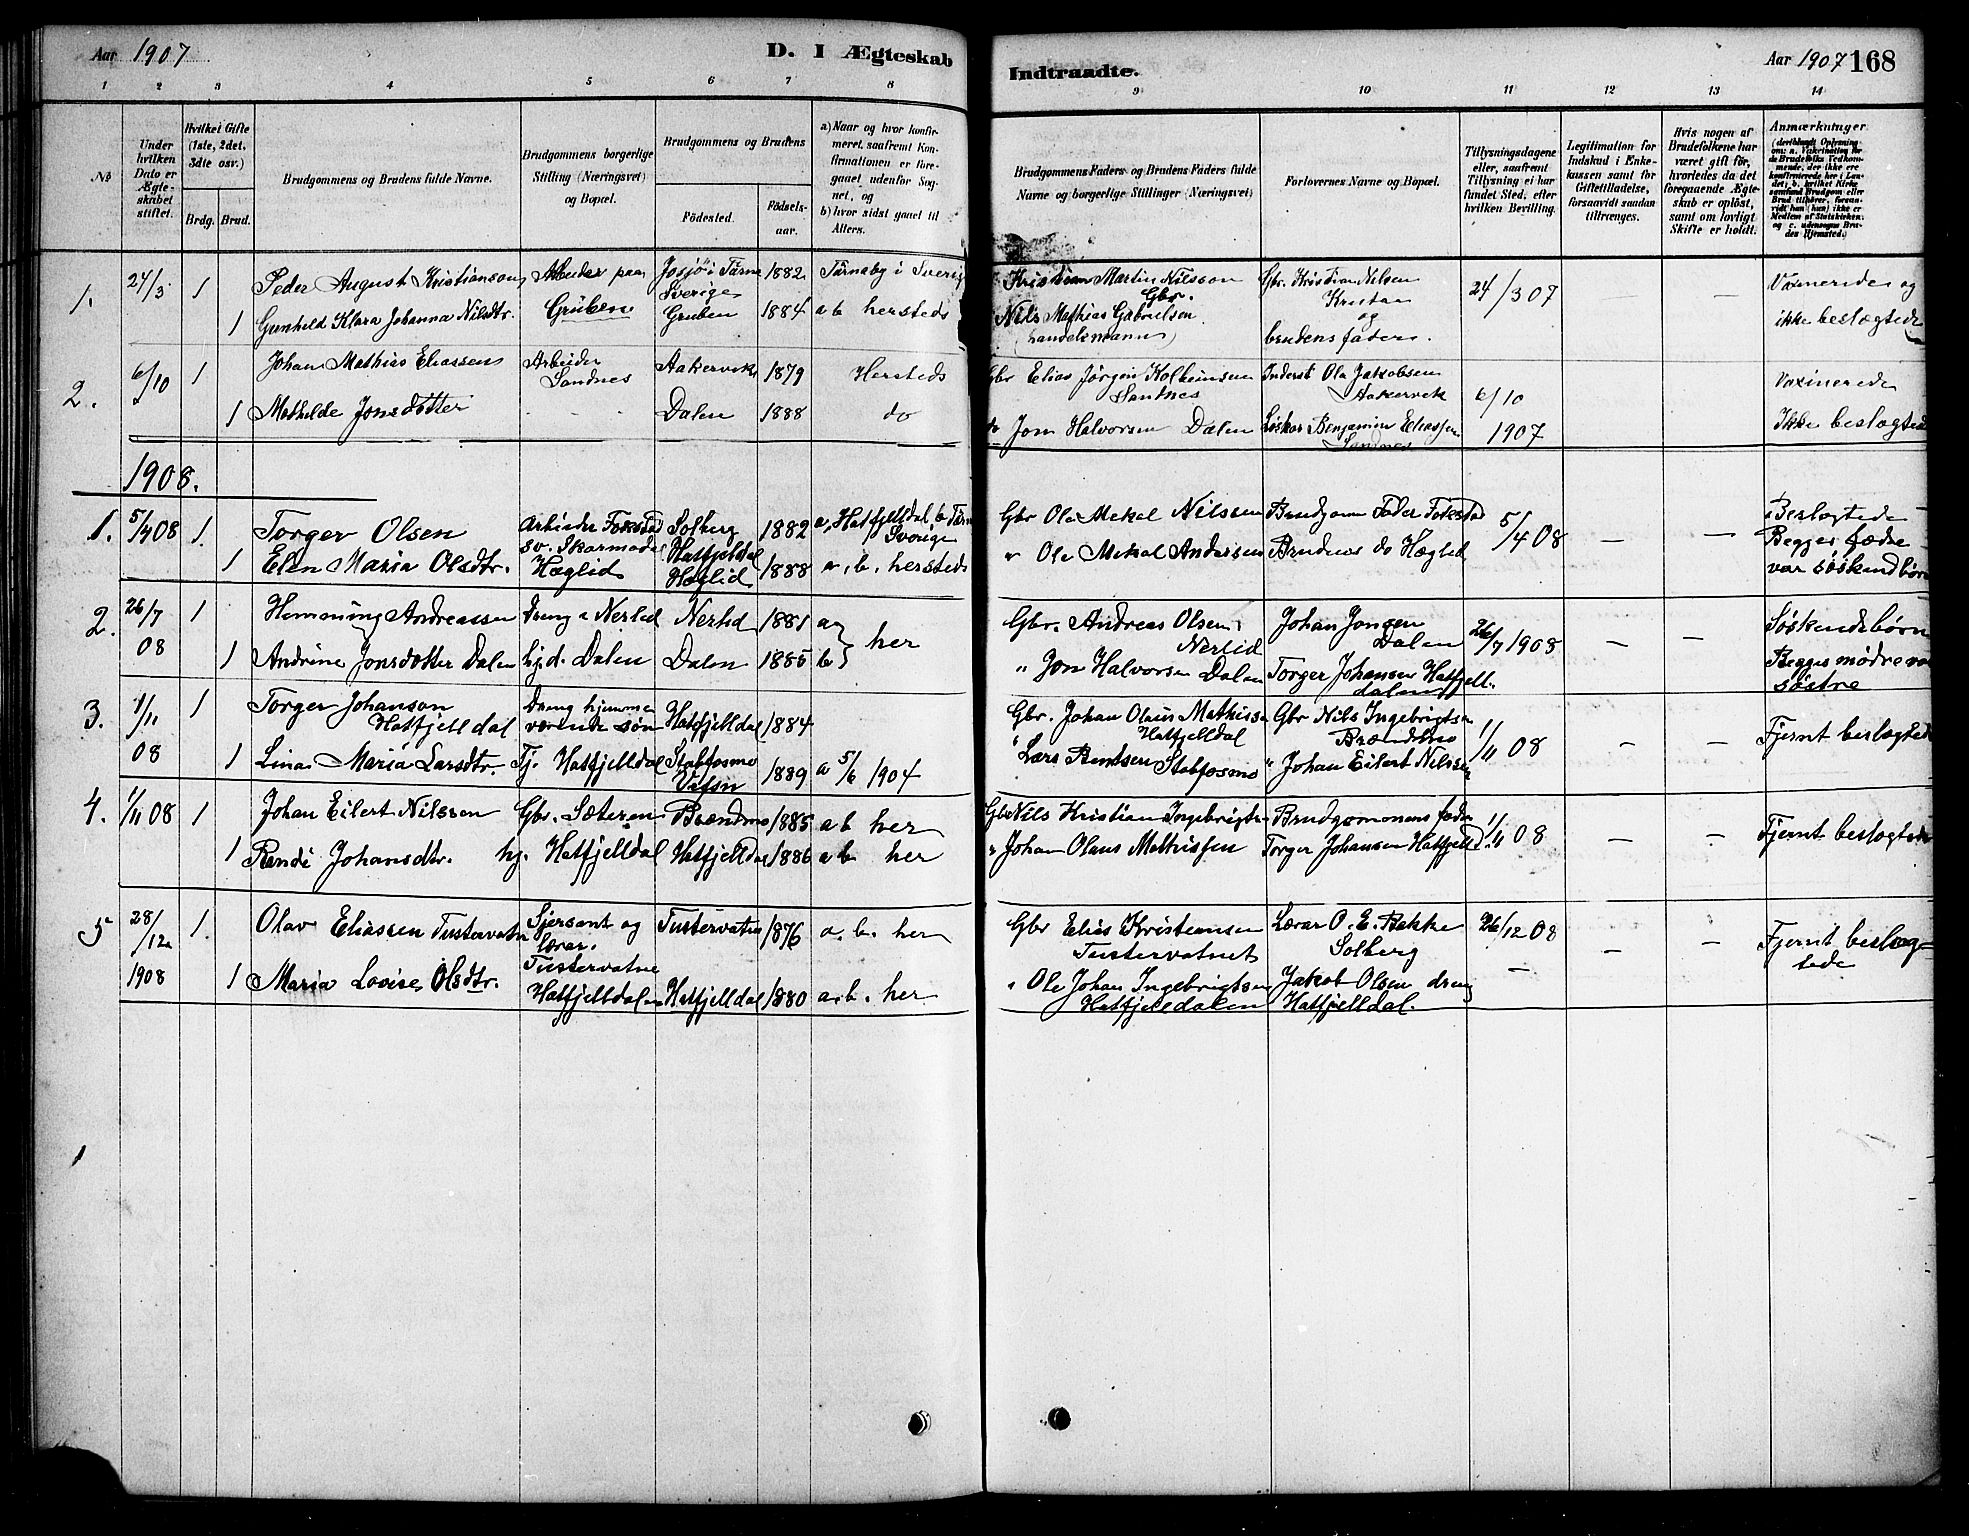 Aar 1907
D. I Ægteskab
Indtraadte.
Aar 1907 168
1 2 3 4 5 6 7 8 9 10 11 12 13 14
No
Under hvilken Dato er Ægteskabet stiftet.
Hvilket Gifte (1ste, 2det, 3die osv.)
Brdg. Brud.
Brudgommens og Brudens fulde Navne.
Brudgommens borgerlige Stilling (Næringsvei) og Bopæl.
Brudgommens og Brudens
Fødested.
Fødselsaar.
a) Naar og hvor konfirmeret, saafremt Konfirmationen er foregaaet udenfor Sognet, og
b) hvor sidst gaaet til Alters.
Brudgommens Faders og Brudens Faders fulde Navne og borgerlige Stillinger (Næringsvei)
Forlovernes Navne og Bopæl.
Tillysningsdagene eller, saafremt Tillysning ei har fundet Sted, efter hvilken Bevilling.
Legitimation for Indskud i Enkekassen samt for Giftetilladelse, forsaavidt saadan tiltrænges.
Hvis nogen af Brudefolkene har været gift før, hvorledes da det foregaaende Ægteskab er opløst, samt om lovligt Skifte er holdt.
Anmærkninger
1. 24/3 1 Peder August Kristianson Arbeider paa Josjö i Tärna 1882 Tärnaby i Sverig
Sverige
1 Gunhild Klara Johanna Nilsdtr. Gruben Gruben 1884 a b hersteds
Kristian Martin Nilsson Gbr. Kristian Nilsen 24/3 07 — — Vaxinerede og
Gbr. Krutaa
Nils Mathias Gabrielsen og ikke beslægtede
(Landelsmann) brudens fader.
2. 6/10 1 Johan Mathias Eliassen Arbeider Aakervik 1879 Hersteds
Sandnes
1 Mathilde Jonsdotter Dalen 1888 do
Gbr Elias Jörgen Kolbeinsen Inderst Ola Jakobsen 6/10 Vaxinerede
Sandnes Aakervik
do Jon Halvorsen Dalen Løskar Benjamin Eliassen 1907 Ikke beslægtede
Sandnes
1908.
1. 5/4 08 1. Torger Olsen Arbeider Solberg 1882 a, Hatfjelldal b Tärna
sv. Skarmodal Hatfjeldal Sverige
1 Elen Maria Olsdtr. Hæglid Hæglid 1888 a, b. hersteds
Gbr Ole Mekal Nilssen Brudgom Fader 5/4 08 — — Beslægtede
" Ole Mekal Andersen Brudens do Hæglid Begges fædre
var söskendbörn
2. 26/7 08 1 Hemming Andreassen Dreng i Nerlid Nerlid 1881 a
1 Andrine Jonsdotter Dalen hj.d. Dalen Dalen 1885 b } her
Gbr. Andreas Olsen Johan Jonsen 26/7 1908 — — Söskendebörn
Nerlid Dalen
" Jon Halvorsen Dalen Torger Johansen Hatfjell- Begges mödre var
dalen söstre
3. 1/11 08 1 Torger Johanson Dreng hjemme Hatfjelldal 1884
Hatfjelldal værende søn
1 Lina Maria Larsdtr. Tj. Hatfjelldal Stabfosmo 1889 a 5/6 1904
Vefsn
Gbr. Johan Olaus Mathissen Gbr Nils Ingebrigtsen 1/11 08 — — Fjernt beslægtede
Hatfjelldal Brændmo
" Lars Bentsen Stabfosmo " Johan Eilert Nilssen
4. 1/11 08 1 Johan Eilert Nilssen Gbr. Sæteren Brændmo 1885 a b her
1 Rendi Johansdtr. hj. Hatfjelldal Hatfjelldal 1886 a b. her
Gbr Nils Kristian Ingebrigtsen Brudgommens fader 1/11 08 — — Fjernt beslægtede
" Johan Olaus Mathissen Torger Johansen Hatfjelld.
5 28/12 1908 1. Olav Eliassen Tustervatn Sjersant og Tustervatn 1876 a. b. her
lærar.
Tustervatne
1 Maria Lovise Olsdtr. Hatfjelldalen Hatfjelldal 1880 a. b. her
Gbr Elias Kristiansen Lærar O. E. Bekke 26/12 08 — — Fjernt beslæg-
Tustervatnet Solberg tede
" Ole Johan Ingebrigtsen Jakob Olsen dreng —
Hatfjelldalen Hatfjelldal.